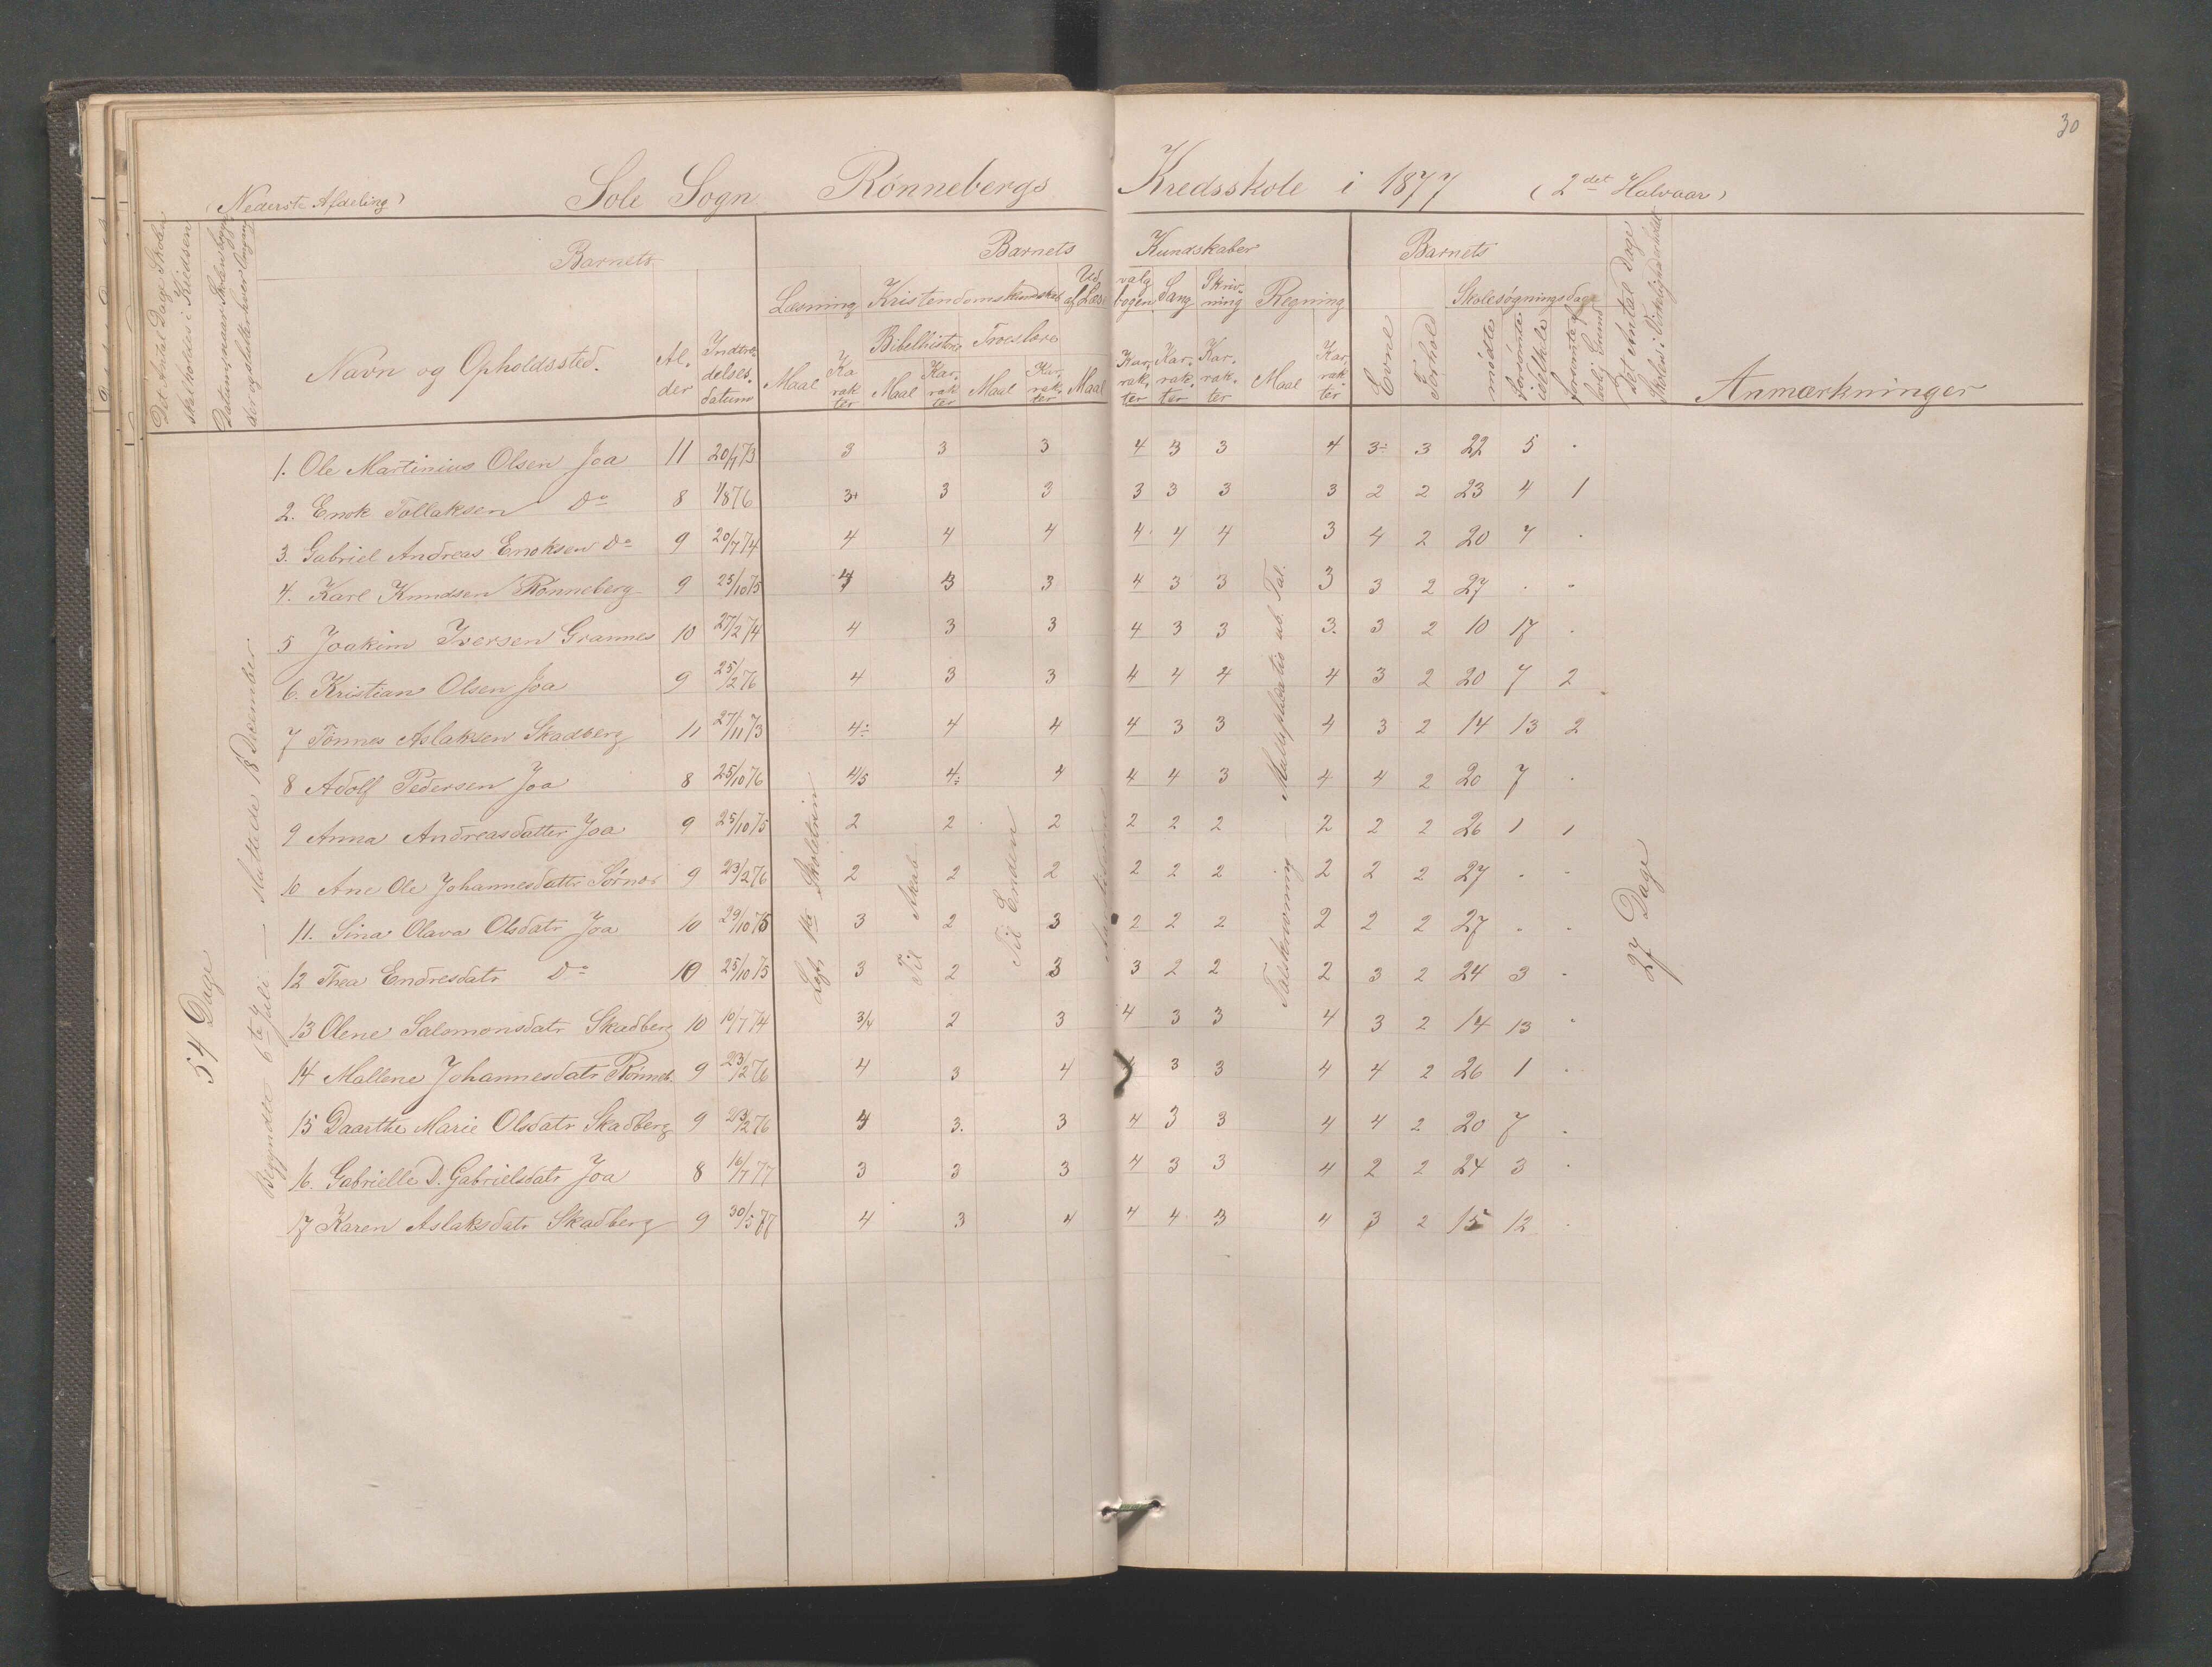 30
(Nederste Afdeling) Sole Sogn Rönnebergs Kredsskole i 1877 (2det Halvaar)
Det Antal Dage Skolen skal holdes i Kredsen
Datum, naar Skolen begynder og slutter hver Omgang
Barnets
Navn og Opholdssted.
Alder
Indtrædelsesdatum
Barnets Kundskaber
Læsning Kristendomskundskab Udvalg af Læsebogen Sang Skrivning Regning
Bibelhistorie Troeslære
Maal Karakter Maal Karakter Maal Karakter Maal Karakter Karakter Karakter Maal Karakter
Barnets
Evne
Forhold
Skolesøgningsdage
mødte
forsømte
forsømte af lovlig Grund
Det Antal Dage Skolen i Virkelighed er holdt
Anmærkninger
54 Dage
Begyndte 6te Juli. — sluttede 13 December.
1. Ole Martinius Olsen Joa 11 20/7 73 3 3 3 4 3 3 4 3÷ 3 22 5 .
2. Enok Tollaksen Do 8 1/8 76 3+ 3 3 3 3 3 3 2 2 23 4 1
3. Gabriel Andreas Enoksen Do 9 20/7 74 4 4 4 4 4 4 3 4 2 20 7 .
4. Karl Knudsen Rönneberg 9 25/10 75 4 3 3 4 3 3 3 3 2 27 . .
5 Joakim Iversen Grannes 10 27/2 74 4 3 3 4 3 3 3. 3 2 10 17 .
6. Kristian Olsen Joa 9 25/2 76 4 3 3 4 4 4 4 3 2 20 7 2
7 Tönnes Aslaksen Skadberg 11 27/11 73 4÷ 4 4 4 3 3 4 3 2 14 13 2
8 Adolf Pedersen Joa 8 25/10 76 4/5 4÷ 4 4 4 3 4 4 2 20 7 .
9 Anna Andreasdatter Joa 9 25/10 75 2 2 2 2 2 2 2 2 2 26 1 1
10 Ane Ole Johannesdattr Sørnes 9 23/2 76 2 2 2 2 2 2 2 2 2 27 . .
11. Sina Olava Olsdatr Joa 10 29/10 75 3 2 3 2 2 2 2 2 2 27 . .
12 Thea Endresdatr Do 10 25/10 75 3 2 3 3 2 2 2 3 2 24 3 .
13 Olene Salomonsdatr Skadberg 10 10/7 74 3/4 2 3 4 3 3 4 3 2 14 13 .
14 Mallene Johannesdatr Rönneb. 9 23/2 76 4 3 4 4 3 3 4 4 2 26 1 .
15 Daarthe Marie Olsdatr Skadberg 9 23/2 76 4 3. 3 4 3 3 4 4 2 20 7 .
16. Gabrielle D. Gabrielsdatr Joa 8 16/7 77 3 3 3 4 3 3 4 2 2 24 3 .
17 Karen Aslaksdatr Skadberg 9 30/5 77 4 3 4 4 4 3 4 3 2 15 12 .
Skoletrin
Til Akab
Til Enden
Talskrivning Multiplikation ub. Tal.
27 Dage